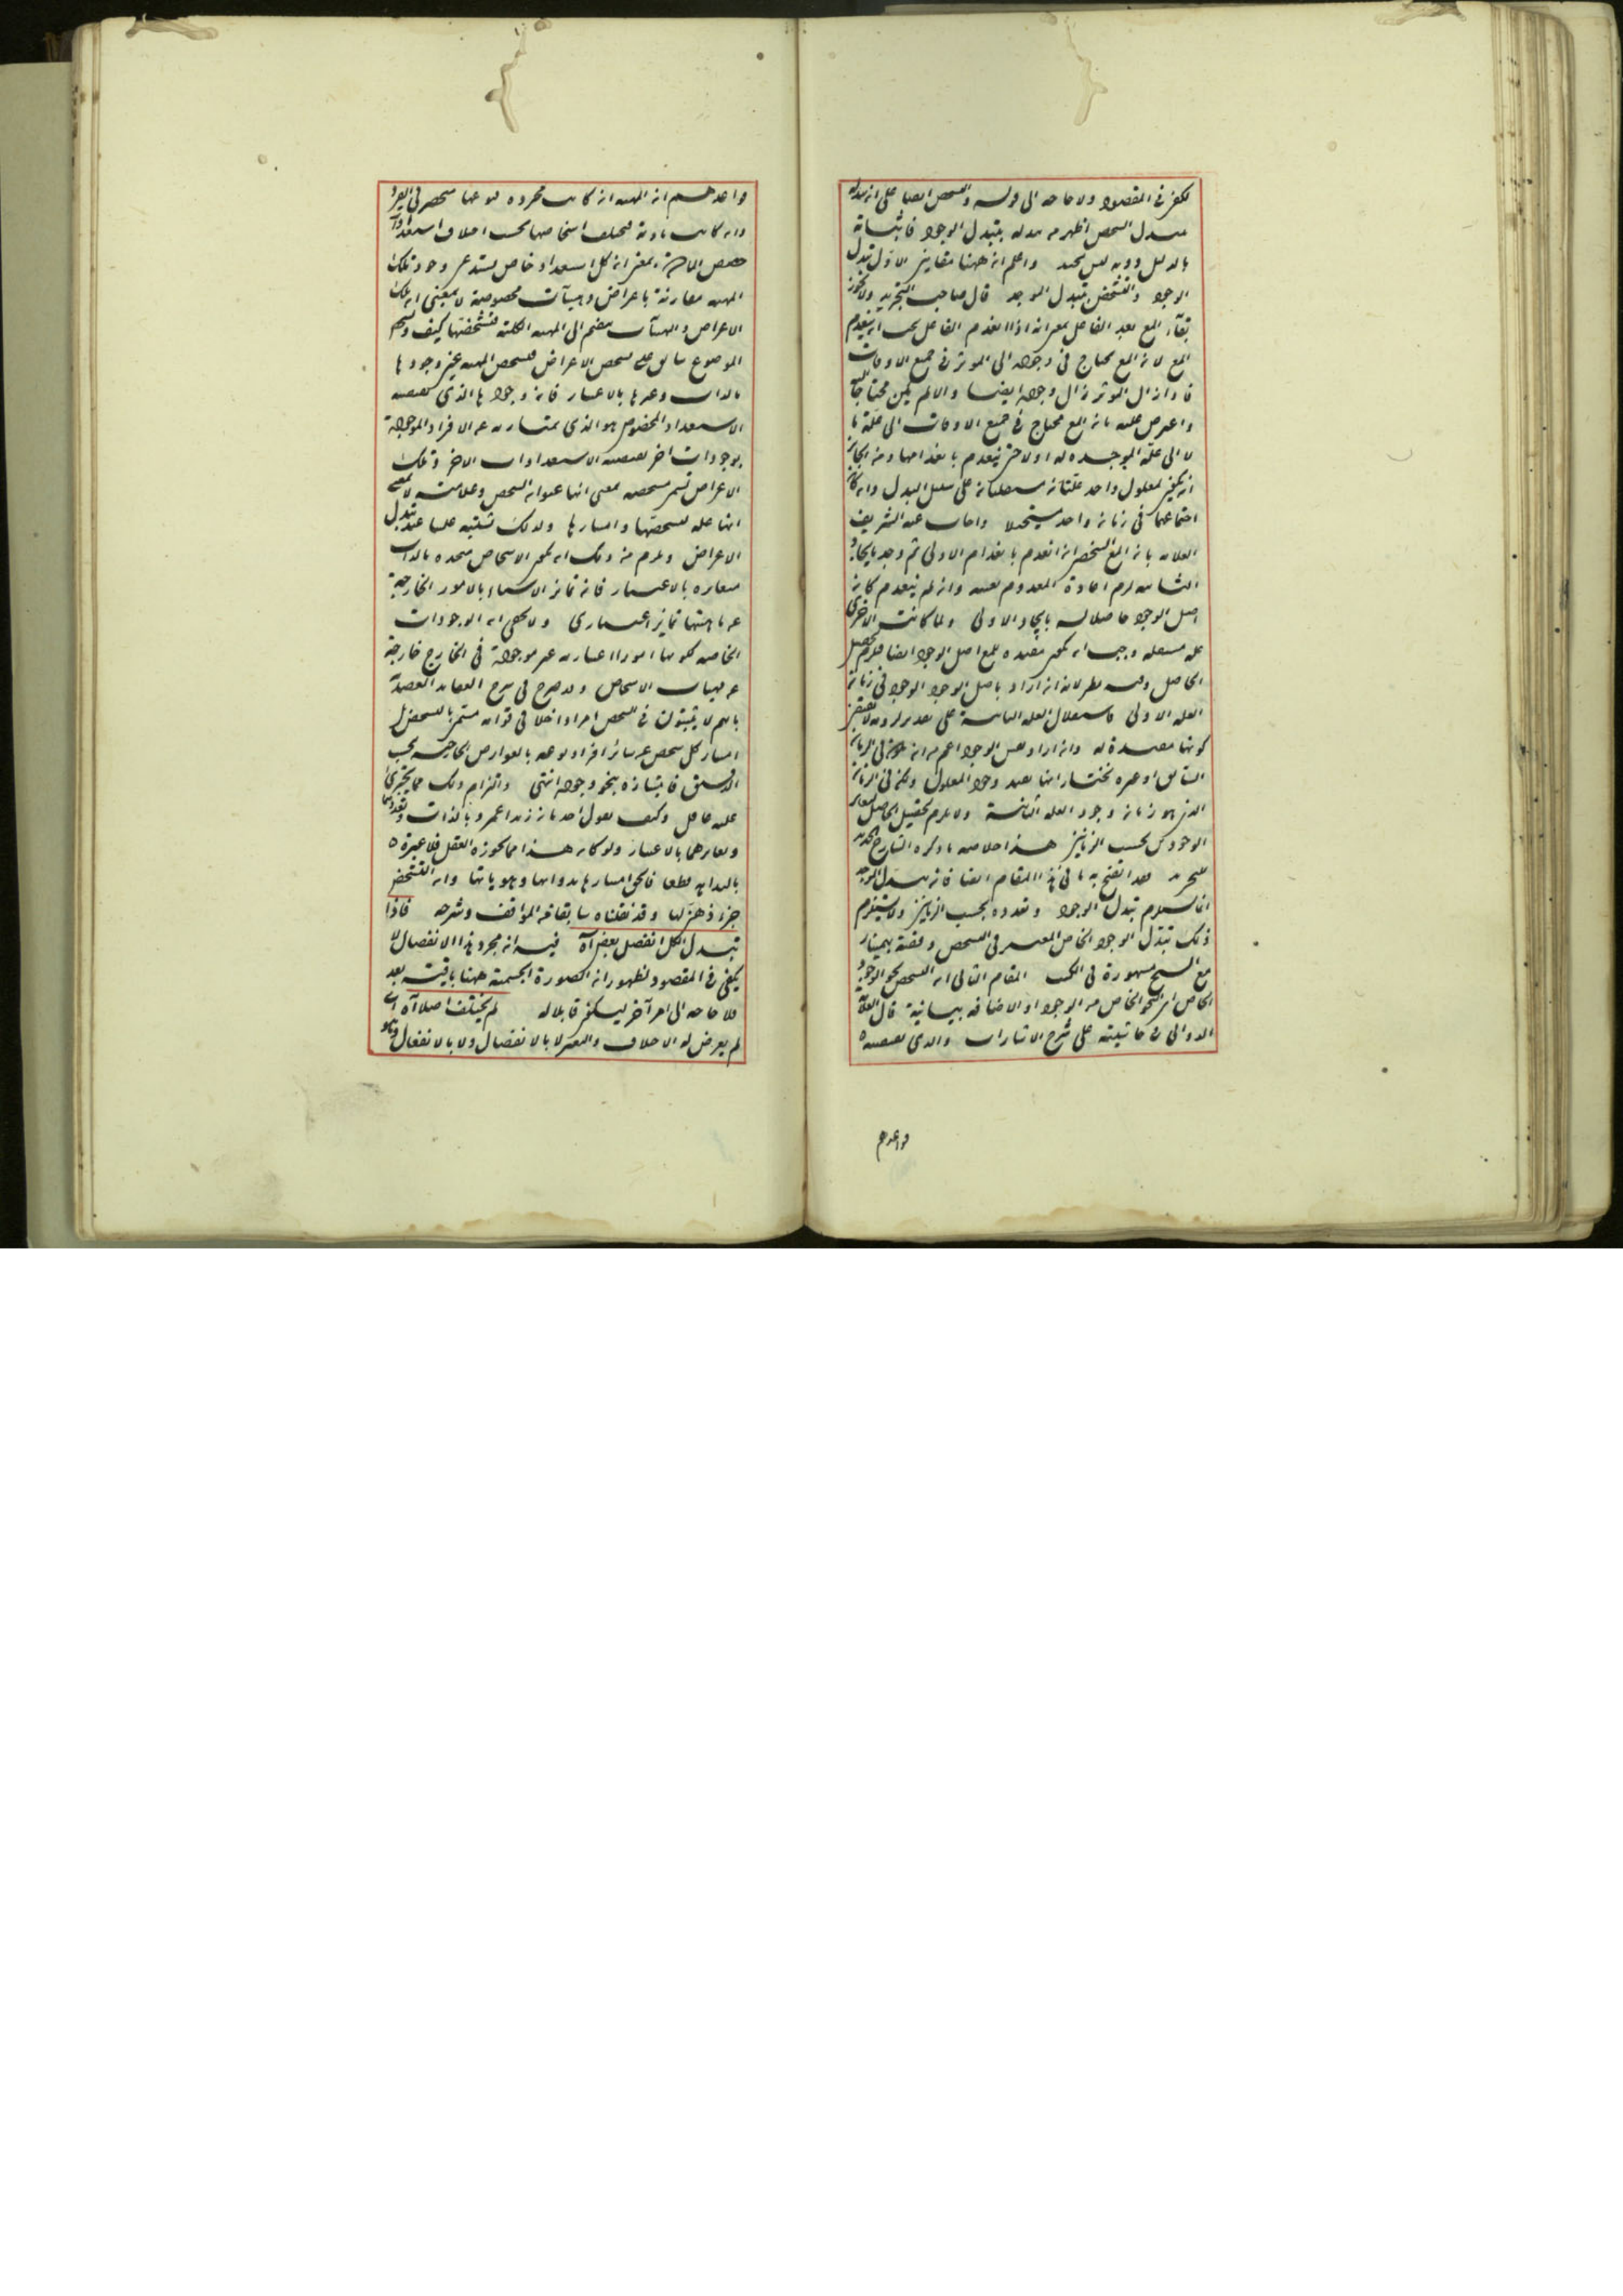 يكفي في المقصود ولا حاجة الى قوله والتشخص ايضا على ان تبدله
تبدل التشخص اظهر من تبدله بتبدل الوجود فاثباته
بالدليل دونه ليس بجيد واعلم ان ههنا مقامين الاول تبدل
الوجود والتشخص بتبدل الموجد قال صاحب التجريد ولا يجوز
بقاء المع بعد الفاعل بمعنى انه اذا انعدم الفاعل يجب ان ينعدم
المع لان المع محتاج في وجوده الى الموثر في جميع الاوقات
فاذا زال الموثر زال وجوده ايضا والا لم يكن محتاجا اليه
واعترض عليه بان المع محتاج في جميع الاوقات الى علة ما
لا الى علة الموجدة له اولا حتى ينعدم بانعدامها ومن الجائز
ان يكون لمعلول واحد علتان مستقلتان على سبيل البدل وان كان
اجتماعهما في زمان واحد مستحيلا واجاب عنه الشريف
العلامة بان المع الشخصي ان انعدم بانعدام الاولى ثم وجد بايجاد
الثانية لزم اعادة المعدوم بعينه وان لم ينعدم كان
اصل الوجود حاصلا له بايجاد الاولى ولما كانت الاخرى
علة مستقلة وجب ان تكون مفيدة للمع اصل الوجود ايضا فلزم تحصيل
الحاصل وفيه نظر لانه ان اراد باصل الوجود الوجود في زمان
العلة الاولى فاستقلال العلة الثانية على تقدير لا يقتضي
كونها مفيدة له وان اراد نفس الوجود اعم من ان يكون في الزمان
السابق او غيره نختار انها تفيد وجود المعلول ولكن في الزمان
الذي هو زمان وجود العلة الثانية ولا يلزم تحصيل الحاصل لتغاير
الوجودين بحسب الزمانين هذا خلاصة ما ذكره الشارح الجديد
للتجريد فقد اتضح به ما في هذا المقام ايضا فان تبدل الموجد
انما يستلزم تبدل الوجود وتعدده بحسب الزمانين ولا يستلزم
ذلك تبدل الوجود الخاص المعتبر في التشخص وقصة بهمنيار
مع الشيخ مشهورة في الكتب المقام الثاني ان التشخص نحو الوجود
الخاص اي النحو الخاص من الوجود او الاضافة بيانية قال العلامة
الدواني في حاشيته على شرح الاشارات والذي نعتقده
قواعدهم
قواعدهم ان المهية ان كانت مجردة نوعها منحصر في الفرد
وان كانت مادية فيختلف اشخاصها بحسب اختلاف استعدادات
حصص المادة بمعنى ان كل استعداد خاص يستدعي وجود تلك
المهية مقارنة باعراض وهيآت مخصوصة لا بمعنى ان تلك
الاعراض والهيآت ينضم الى المهية الكلية فتشخصها كيف وتشخص
الموضوع سابق على تشخص الاعراض فتشخص المهية عين وجودها
بالذات وغيرها بالاعتبار فان وجودها الذي يقتضيه
الاستعداد المخصوص هو الذي يمتاز به عن الافراد الموجودة
بوجودات اخر يقتضيه الاستعدادات الاخر وتلك
الاعراض تسمى مشخصة بمعنى انها عنوان التشخص وعلامته لا بمعنى
انها علة لتشخصها وامتيازها ولذلك تشتبه علينا عند تبدل
الاعراض ويلزم من ذلك ان يكون الاشخاص متحدة بالذات
متغايرة بالاعتبار فان تمايز الاشياء بالامور الخارجة
عن ماهيتها تمايز اعتباري ولا يخفى ان الوجودات
الخاصة لكونها امورا اعتبارية غير موجودة في الخارج خارجة
عن مهيات الاشخاص وقد صرح في شرح العقايد العضدية
بانهم لا يثبتون في التشخص امرا داخلا في قوامه مسمى بالتشخص بل
امتياز كل شخص عن سائر افراد نوعه بالعوارض الخارجية بحسب
الادق فامتيازه بنحو وجوده انتهى والتزام ذلك مما يجترئ
عليه عاقل وكيف يقول احد بان زيدا عمرو بالذات وتعددهما
وتغايرهما بالاعتبار ولو كان هذا مما يجوزه العقل فلا عبرة
بالبداهة قطعا فالحق امتيازها بذواتها وهوياتها وان التشخص
جزء ذهني لها وقد نقلناه سابقا عن المواقف وشرحه فاذا
تبدل الكل انفصل بعض آه فيه ان مجرد هذا الانفصال لا
يكفي في المقصود لظهور ان الصورة الجسمية ههنا باقية بعد
فلا حاجة الى امر آخر ليكون قابلا له لم يختلف اصلا آه اي
لم يعرض له الاختلاف والتغير لا بالانفصال ولا بالانفعال وهو